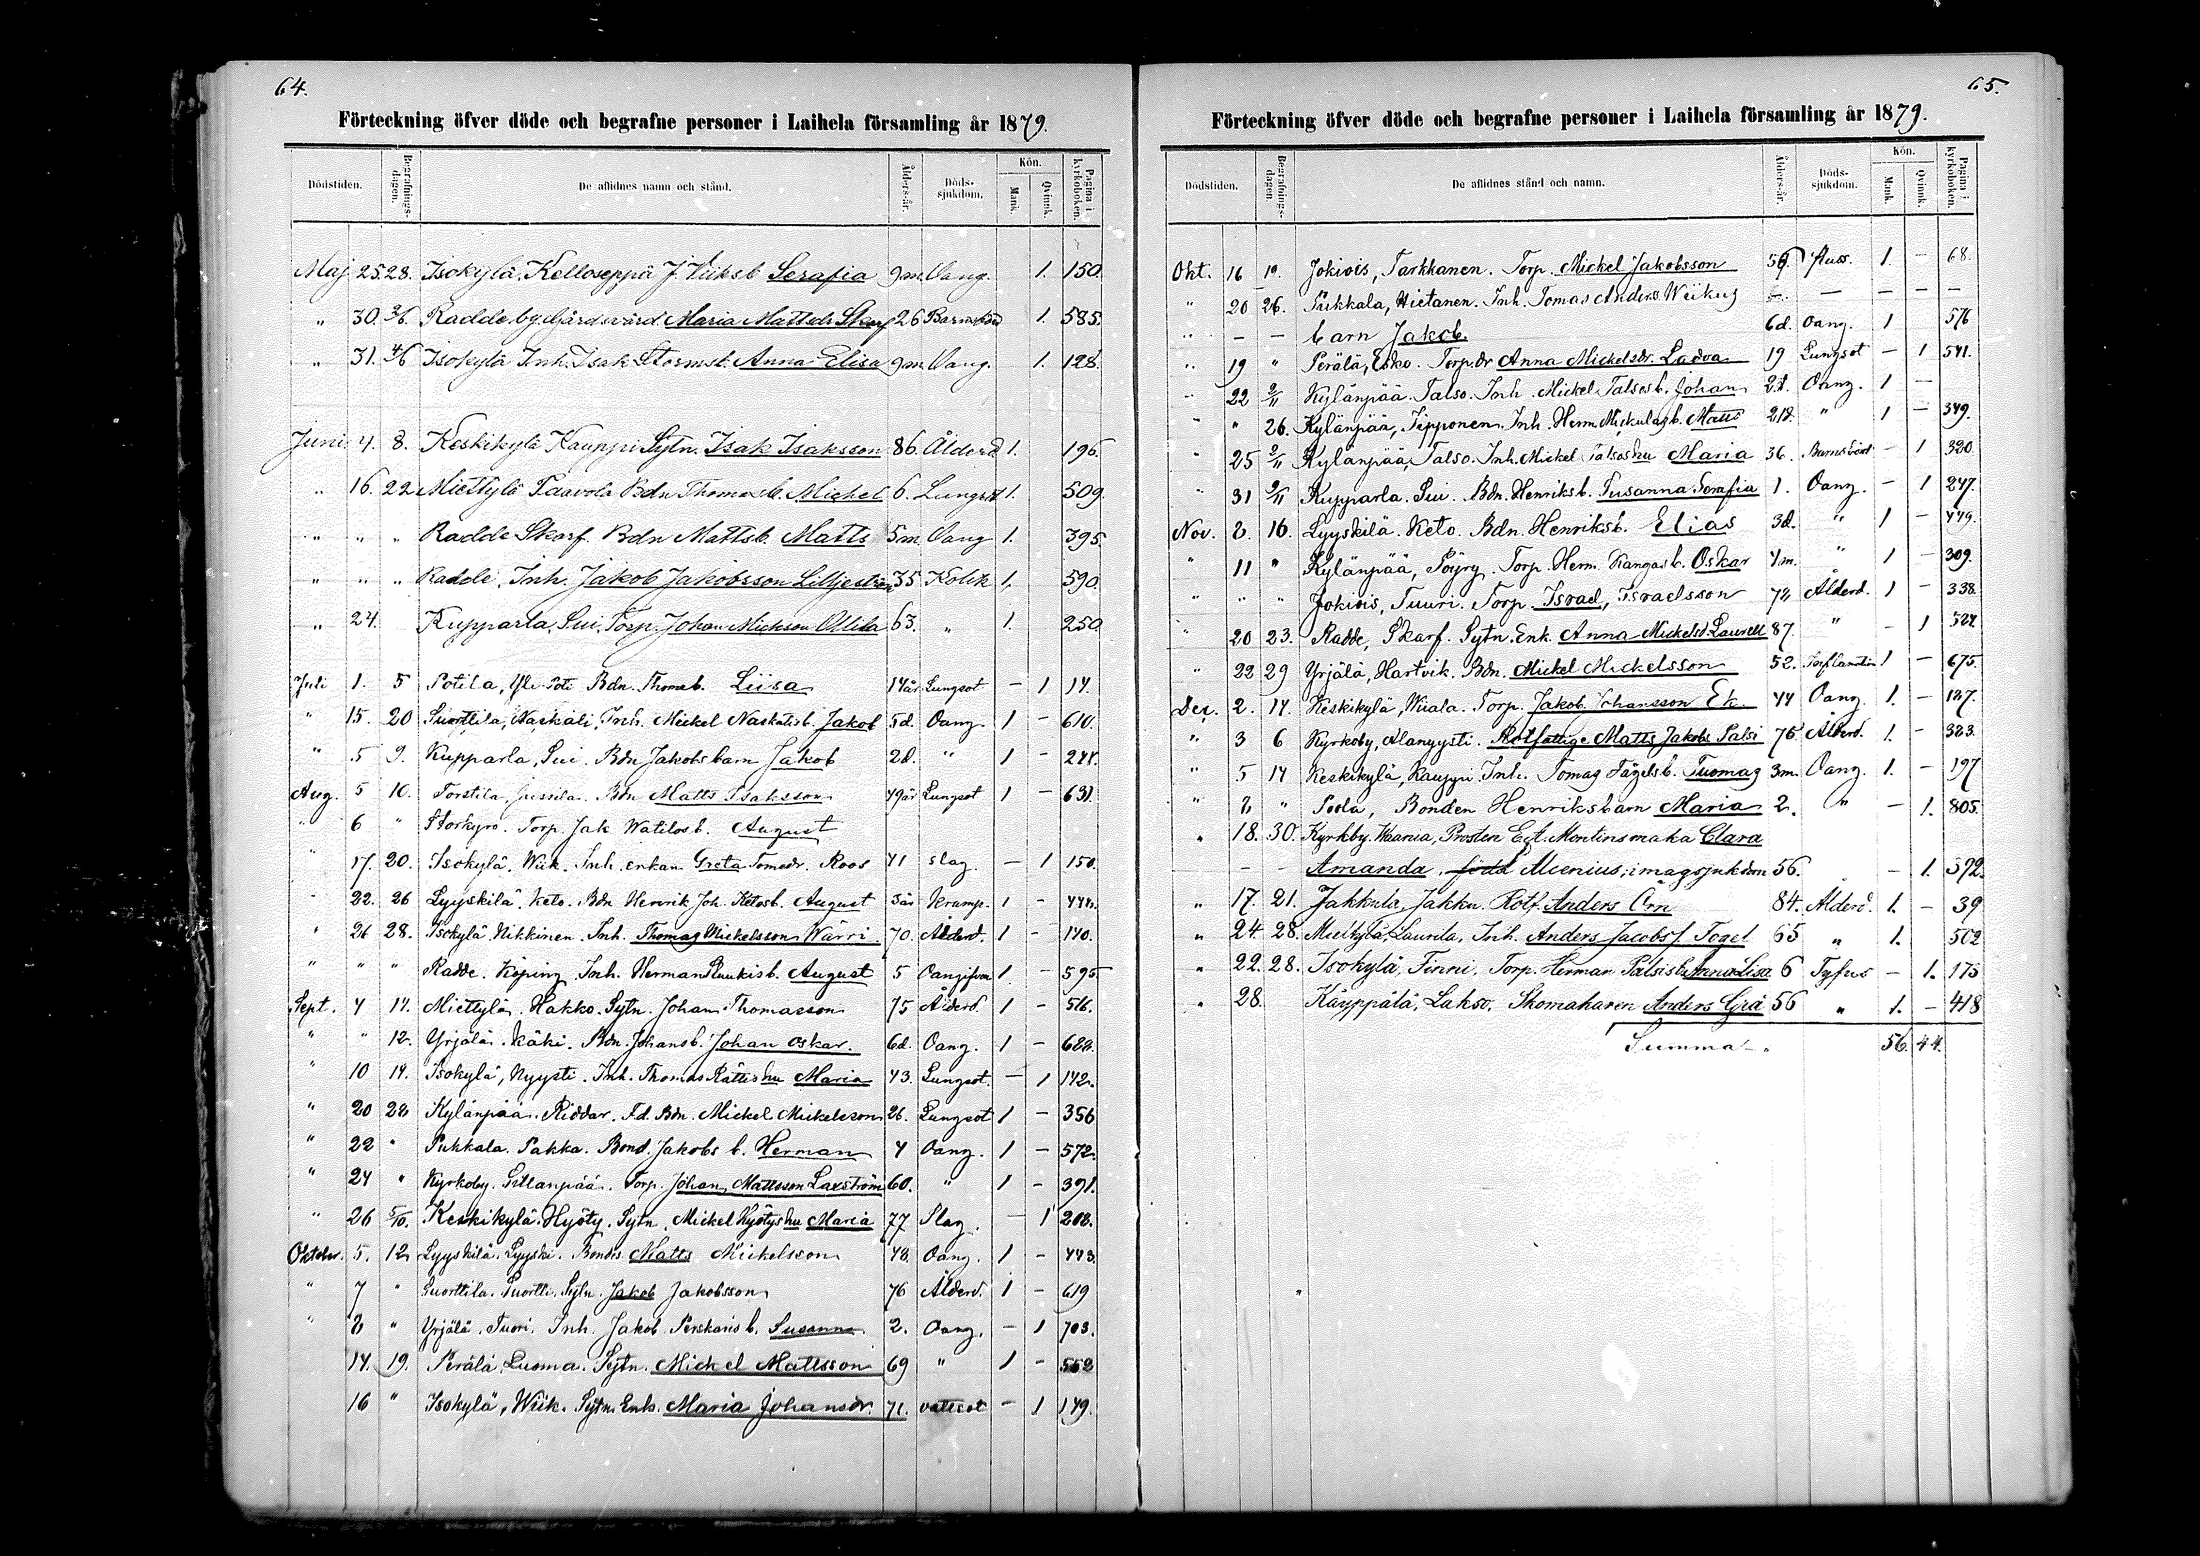 64.
Förteckning öfver döde och begrafne personer i Laihela församling år 1879.
Dödstiden. Begrafnings-dagen. De aflidnes namn och stånd. Ålders-år. Döds-sjukdom. Kön. Mank. Qvinnk. Pagina i kyrkoboken.
Maj 25 28. Isokylä, Kelloseppä J. Wiiksb Serafia 9m. Oang. 1. 150.
" 30. 3/6. Radde by Maria Mattsdr Skarf 26 Barnsbörd 1. 585.
" 31. 4/6 Isokylä Inh. Isak Stormsb. Anna Elisa 9m. Oang. 1. 128.
Juni 4. 8. Keskikylä Kauppi Sytn. Isak Isaksson 86. Ålderd. 1. 196.
" 16. 22. Miettylä Paavola Bdn Thomasb. Michel 6. Lungsot 1. 509.
" " " Radde Skarf. Bdn Mattsb. Matts 5m. Oang 1. 395.
" " " Radde, Inh. Jakob Jakobsson Liljeström 35 Kolik 1. 590.
" 24. Kupparla, Sui, Torp. Johan Mickson Ollila 63. " 1. 250.
Juli 1. 5 Potila, Yli-Poti Bdn. Thomasb. Liisa 14år Lungsot – 1 14.
" 15. 20 Suorttila, Naskali, Inh. Mickel Naskalisb. Jakob 5d. Oang. 1 – 610.
" 5 9. Kupparla, Sui Bdn Jakobsbarn Jakob 2d. " 1 – 244.
Aug. 5 10. Torstila, Bdn Matts Isaksson 49år Lungsot 1 – 631.
" 6 " Storkyro. Torp. Jak Watilosb. August
" 17. 20. Isokylä. Wiik. Inh. enkan Greta Tomasdr. Roos 41 slag. – 1 150.
" 22. 26 Lyyskilä. Keto. Bdn Henrik Joh. Ketosb. August 3år Kramp. 1 – 444.
" 26 28. Isokylä Nikkinen. Inh. Thomas Mickelsson Wärri 70. Ålderd. 1 – 140.
" " " Radde. Köping. Inh. Herman Ruukisb. August 5 1 – 595
Sept. 4 14. Miettylä. Hakko. Sytn. Johan Thomasson 75 Ålderd. 1 – 516.
" " 12. Yrjälä. Käki. Bdn. Johansb. Johan Oskar. 6d. Oang. 1 – 682.
" 10 14. Isokylä, Nyysti. Inh. Thomas Rättishu Maria 43. Lungsot. – 1 142.
" 20 28 Kylänpää. Riddar. F.d. Bdn. Mickel Mickelsson 26. Lungsot 1 – 356
" 22 " Pukkala. Pakka. Bond. Jakobs b. Herman 4 Oang. 1 – 572.
" 24 " Kyrkoby. Gillanpää. Torp. Johan Mattsson Laxström 60. " 1 – 391.
" 26 5/10. Keskikylä. Hyöty. Sytn. Mickel Hyötyshu Maria 77 Slag. – 1 208.
Oktober. 5. 12 Lyyskilä. Lyyski. Bonds. Matts Mickelsson 48 Oang. 1 – 443.
" 7 " Suorttila. Suortti. Sytn. Jakob Jakobsson 76 Ålderd. 1 – 619
" 8 " Yrjälä. Tuori. Inh. Jakob Perskaris b. Susanna 2. Oang. – 1 703.
14. 19. Perälä, Luoma. Sytn. Mickel Mattsson 69 " 1 – 552
16 " Isokylä, Wiik. Sytn. Enk. Maria Johansdr. 71. vattsot – 1 149.
65.
Förteckning öfver döde och begrafne personer i Laihela församling år 1879.
Dödstiden. Begrafnings-dagen. De aflidnes stånd och namn. Ålders-år. Döds-sjukdom. Kön. Mank. Qvinnk. Pagina i kyrkoboken.
Okt. 16 19. Jokivis, Tarkkanen. Torp. Mickel Jakobsson 59 1. – 68.
" 20 26. Pukkala, Hietanen. Inh. Tomas Anders. Wiikus – – – –
" – – barn Jakob. 6d. Oang. 1 576
" 19 " Perälä, Esko. Torp.dr Anna Mickelsdr. Ladva 19 Lungsot – 1 541.
" 22 2/11 Kylänpää. Talso. Inh. Mickel Talsosb. Johan 2d. Oang. 1 –
" " 26. Kylänpää, Sipponen. Inh. Herm. b. Matts " 1 – 349.
" 25 2/11 Kylänpää, Talso. Inh. Mickel Talsoshu Maria 36. Barnsbörd – 1 320.
" 31 9/11 Kupparla. Sui. Bdn. Henriksb. Susanna Serafia 1. Oang. – 1 247.
Nov. 8. 16. Lyyskilä. Keto. Bdn. Henriksb. Elias 3d. " 1 – 449.
" 11 " Kylänpää, Pöyry. Torp. Herm. Kangasb. Oskar 4m. " 1 – 309.
" " " Jokivis, Tuuri. Torp. Israel, Israelsson 78 Ålderd. 1 – 338.
" 20 23. Radde, Skarf. Sytn. Enk. Anna Mickelsd. Laurell 87. " – 1 584.
" 22 29 Yrjälä, Hartvik. Bdn. Mickel Mickelsson 52. 1 – 675.
Dec. 2. 14. Keskikylä, Wiala. Torp. Jakob Johansson Ek. 44 Oang. 1. – 187.
" 3 6 Kyrkoby, Alanyysti. Rotfattige Matts Jakobs. Salsi 76 Ålderd. 1. – 323.
" 5 14 Keskikylä, Kauppi Inh. Tomas Fågelsb. Tuomas 3m. Oang. 1. – 197
" 8 " Poola, Bonden Henriksbarn Maria 2. " – 1. 805.
" 18. 30. Kyrkby. Waania, Prosten E.J. Montins maka Clara
– – Amanda, född Munius, i magsjukdom 56. – 1. 392.
" 17. 21. Jakkula, Jakku. Rotf. Anders Orn 84. Ålderd. 1. – 39
" 24 28. Miettylä, Laurila, Inh. Anders Jacobs f. Fogel 65 " 1. 502
" 22. 28. Isokylä, Finni, Torp. Herman Palsisb Anna Lisa 6 Tyfus – 1. 175
" 28. Käuppälä, Lakso, Skomakaren Anders Grå 56 " 1. – 418
Summa 56. 44.